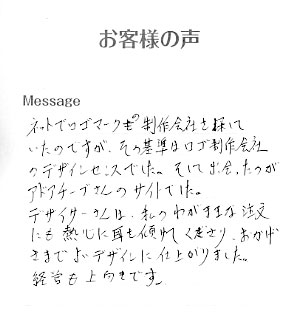 お客様の声
Message
ネットでロゴマークの制作会社を探して
いたのですが、その基準はロゴ制作会社
のデザインセンスでした。そして出会ったのが
アドアチーブさんのサイトでした。
デザイナーさんは、私のわがままな注文
にも熱心に耳を傾けてくださり、おかげ
さまでよいデザインに仕上がりました。
経営も上向きです。